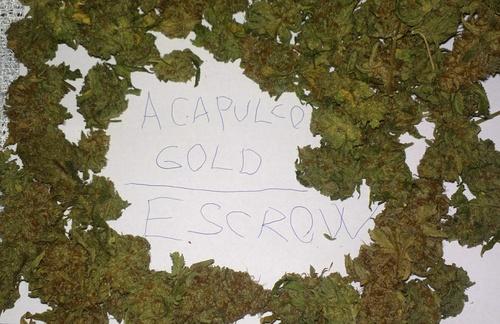 ACAPULCO
GOLD
ESCROW